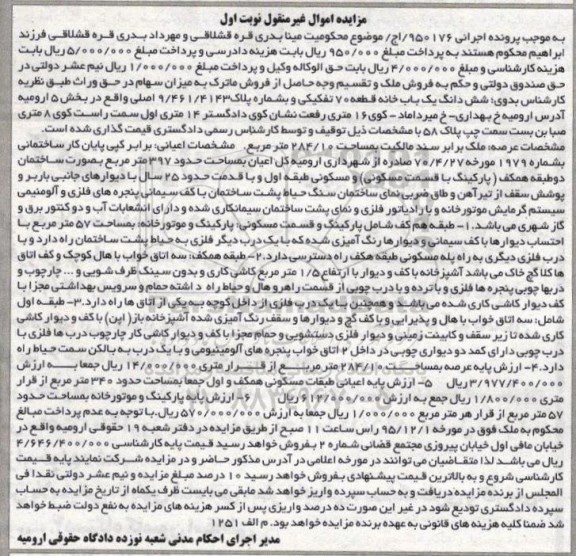 مزایده اموال غیرمنقول نوبت اول
به موجب پرونده اجرائی ۹۵۰۱۷۶/اج/ موضوع محکومیت مینا بدری قره قشلاقی و مهرداد بدری قره قشلاقی فرزند
ابراهیم محکوم هستند به پرداخت مبلغ ۹۵۰/۰۰۰ ریال بابت هزینه دادرسی و پرداخت مبلغ ۵/۰۰۰/۰۰۰ ریال بابت
هزینه کارشناسی و مبلغ ۴/۰۰۰/۰۰۰ ریال بابت حق الوکاله وکیل و پرداخت مبلغ ۱/۰۰۰/۰۰۰ ریال نیم عشر دولتی در
حق صندوق دولتی و حکم به فروش ملک و تقسیم وجه حاصل از فروش ماترک به میزان سهام در حق وراث طبق نظریه
کارشناس بدوی: شش دانگ یک باب خانه قطعه ۷۰ تفکیکی و بشماره پلاک ۹/۴۶۱/۴۱۴۳ اصلی واقع در بخش ۵ ارومیه
آدرس ارومیه خ بهداری- خ میرداماد- کوی ۱۶ متری رفعت نشان کوی دادگستر ۱۴ متری اول سمت راست کوی ۸ متری
صبا بن بست سمت چپ پلاک ۵۸ با مشخصات ذیل توقیف و توسط کارشناس رسمی دادگستری قیمت گذاری شده است.
مشخصات عرصه: ملک برابر سند مالکیت بمساحت ۲۸۴/۱۰ متر مربع. مشخصات اعیانی: برابر کپی پایان کار ساختمانی
بشماره ۱۹۷۹ مورخه ۷۰/۴/۲۷ صادره از شهرداری ارومیه کل اعیان بمساحت حدود ۳۹۷ متر مربع بصورت ساختمانی
دوطبقه همکف (پارکینگ با قسمت مسکونی) و مسکونی طبقه اول و با قدمت حدود ۲۵ سال با دیوارهای جانبی باربر و
پوشش سقف از تیرآهن و طاق ضربی نمای ساختمان سنگ حیاط پشت ساختمان با کف سیمانی پنجره های فلزی و آلومنیمی
سیستم گرمایش موتورخانه و با رادیاتور فلزی و نمای پشت ساختمان سیمانکاری شده و دارای انشعابات آب و دو کنتور برق و
گاز شهری می باشد. ۱- طبقه هم کف شامل پارکینگ و قسمت مسکونی: پارکینگ و موتورخانه: بمساحت ۵۷ متر مربع با
احتساب دیوارها با کف سیمانی و دیوارها رنگ آمیزی شده که با یک درب دیگر فلزی به حیاط پشت ساختمان راه دارد و با
درب فلزی دیگری به راه پله مسکونی طبقه هکف راه دسترسی دارد. ۲- طبقه همکف: سه اتاق خواب با هال کوچک و کف اتاق
ها کلا گچ خاک می باشد آشپزخانه با کف و دیوار با ارتفاع ۱/۵ متر مربع کاشی کاری و بدون سینک ظرف شویی و ... چارچوب و
دربها چوبی پنجره ها فلزی و با نرده و با درب چوبی از قسمت راهرو هال و حیاط راه داشته حمام و سرویس بهداشتی مجزا با
کف دیوار کاشی کاری شده می باشد و همچنین با یک درب فلزی از داخل کوچه به یکی از اتاق ها راه دارد. ۳- طبقه اول
شامل: سه اتاق خواب با هال و پذیرایی و با کف گچ و دیوارها و سقف رنگ آمیزی شده آشپزخانه باز (اپن) با کف و دیوار کاشی
کاری شده تا زیر سقف و کابینت زمینی و دیوار فلزی دستشویی و حمام مجزا با کف و دیوار کاشی کار چارچوب درب ها فلزی با
درب چوبی دارای کمد دو دیواری چوبی در داخل ۲ اتاق خواب پنجره های آلومینیومی و با یک درب به بالکن سمت حیاط راه
دارد. ۴- ارزش پایه عرصه بمساحت ۲۸۴/۱۰ متر مربع از قرار متری ۱۴/۰۰۰/۰۰۰ ریال جمعا به ارزش
۳/۹۷۷/۴۰۰/۰۰۰ ریال ۵- ارزش پایه اعیانی طبقات مسکونی همکف و اول جمعا بمساحت حدود ۳۴۰ متر مربع از قرار
متری ۱/۸۰۰/۰۰۰ ریال جمع به ارزش ریال ۶- ارزش پایه پارکینگ و موتورخانه بمساحت حدود
۵۷ متر مربع از قرار هر متر مربع ۱/۰۰۰/۰۰۰ ریال جمعا به ارزش ۵۷۰/۰۰۰/۰۰۰ ریال. با توجه به عدم پرداخت مبالغ
محکوم به ملک فوق در مورخه ۹۵/۱۲/۱ راس ساعت ۱۱ صبح از طریق مزایده در دفتر شعبه ۱۹ حقوقی ارومیه واقع در
خیابان مافی اول خیابان پیروزی مجتمع قضائی شماره ۲ بفروش خواهد رسید قیمت پایه کارشناسی ۴/۶۴۶/۴۰۰/۰۰۰
ریال می باشد لذا متقاضیان می توانند در مورخه اعلامی در آدرس مذکور حاضر و در مزایده شرکت نمایند پایه قیمت
کارشناسی شروع و به بالاترین قیمت پیشنهادی بفروش خواهد رسید ۱۰ درصد مبلغ مزایده و نیم عشر دولتی نقدا فی
المجلس از برنده مزایده دریافت و به حساب سپرده واریز خواهد شد مابقی می بایست ظرف یکماه از تاریخ مزایده به حساب
سپرده دادگستری تودیع شود در غیر این صورت ده درصد واریزی پس از کسر هزینه های مزایده به نفع دولت ضبط خواهد
شد ضمنا کلیه هزینه های قانونی به عهده برنده مزایده خواهد بود. م الف ۱۲۵۱
مدیر اجرای احکام مدنی شعبه نوزده دادگاه حقوقی ارومیه